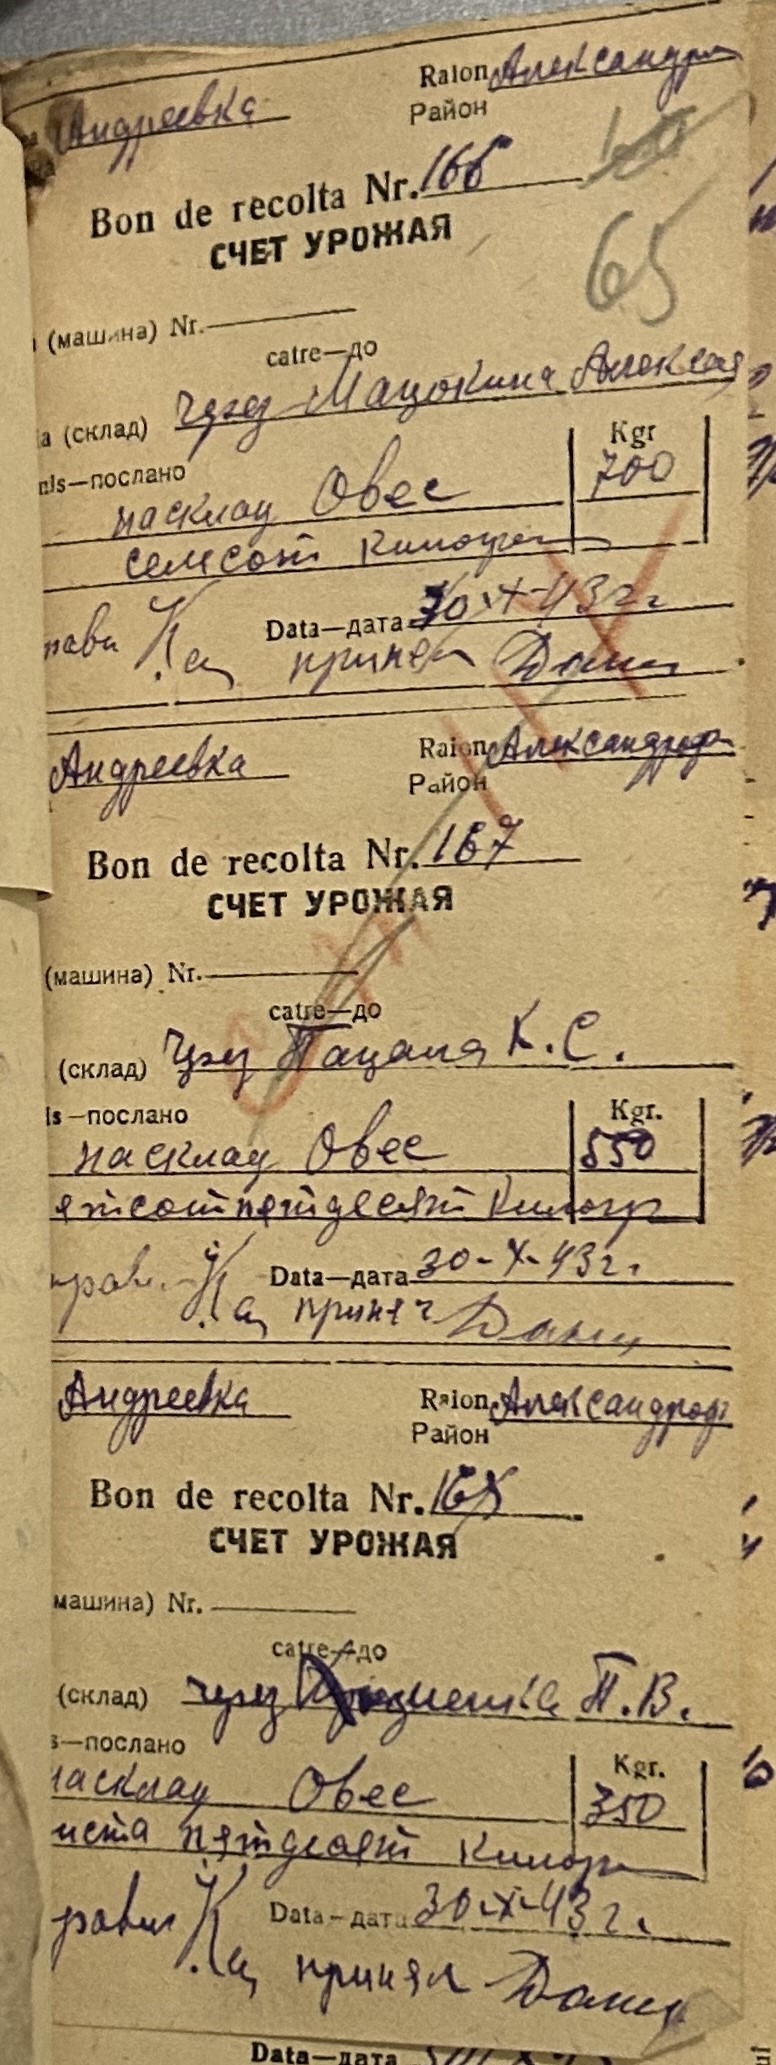 Андреевка Raion Александр
Район
100
Bon de recolta Nr. 166
65
СЧЕТ УРОЖАЯ
(машина) Nr.
catre—до
(склад) через Мацокина Алексея
Kgr
nis—послано
насклад Овес 700
семсот килогр
Data—дата 30-X-43 г.
прави Кац принял
Андреевка Raion Александроф
Район
Bon de recolta Nr. 167
СЧЕТ УРОЖАЯ
(машина) Nr.
catre—до
(склад) через Пацаля К.С.
is—послано Kgr.
насклад Овес 550
ятсотпятдесят килогр
Data—дата 30-X-43 г.
прави Кац принял
Андреевка Raion Александроф
Район
Bon de recolta Nr. 168
СЧЕТ УРОЖАЯ
машина) Nr.
catre—до
(склад) через П.В.
s—послано Kgr.
насклад Овес 350
иста пятдесят килогр
Data—дата 30-X-43 г.
равил Кац принял
Data—дата